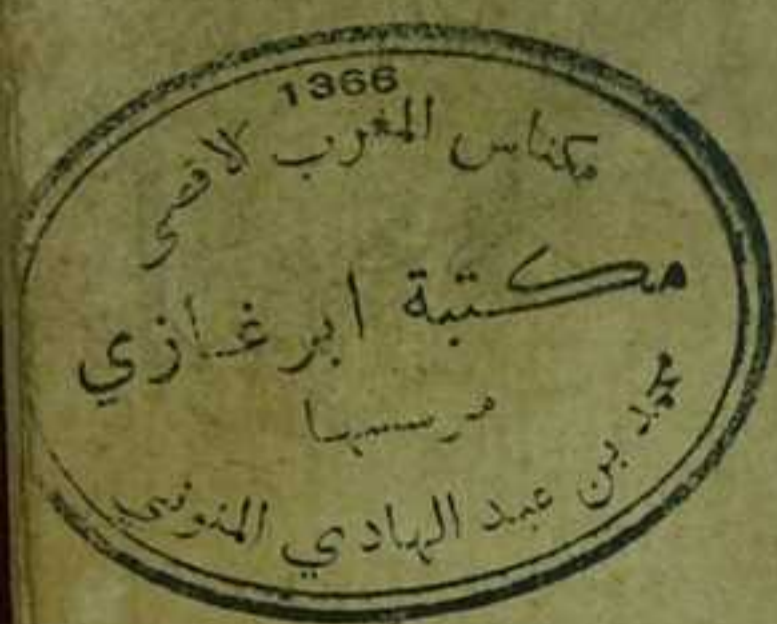 1366
مكناس المغرب لاقصى
مكتبة ابن غازي
مؤسسها
محمد بن عبد الهادي المنوني